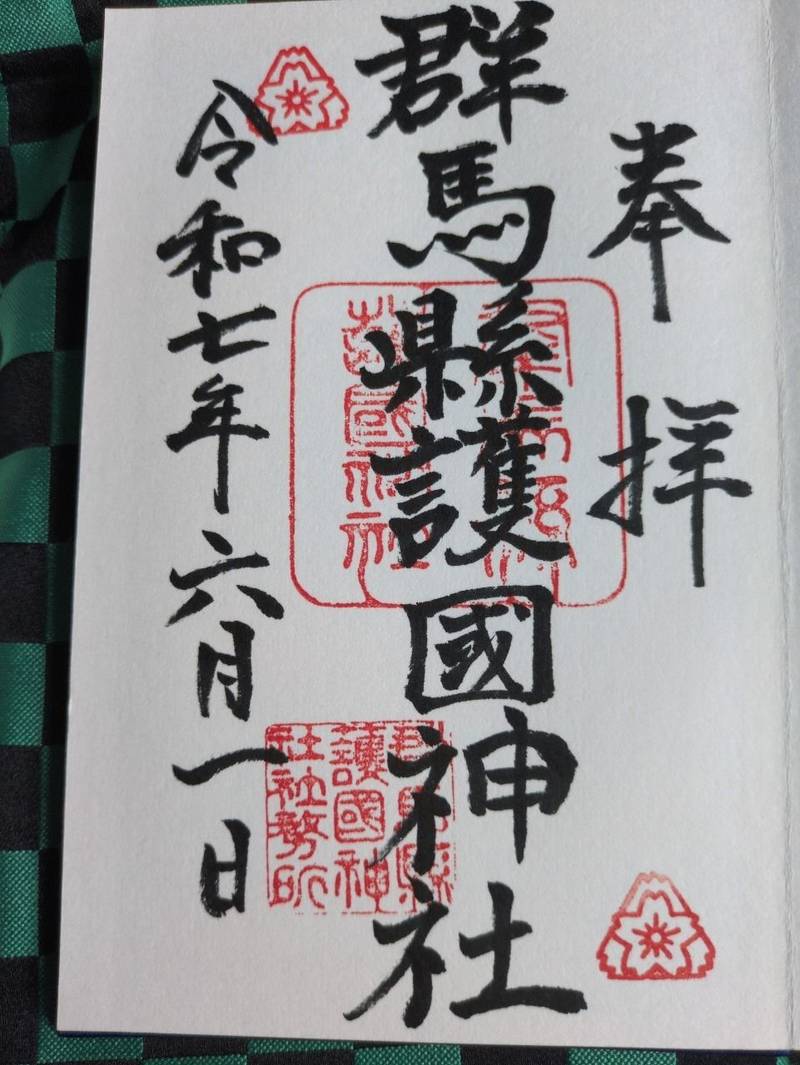 奉拝
群馬縣護國神社
令和七年六月一日
群馬縣
護國神
社社務所
群馬縣
護國神社